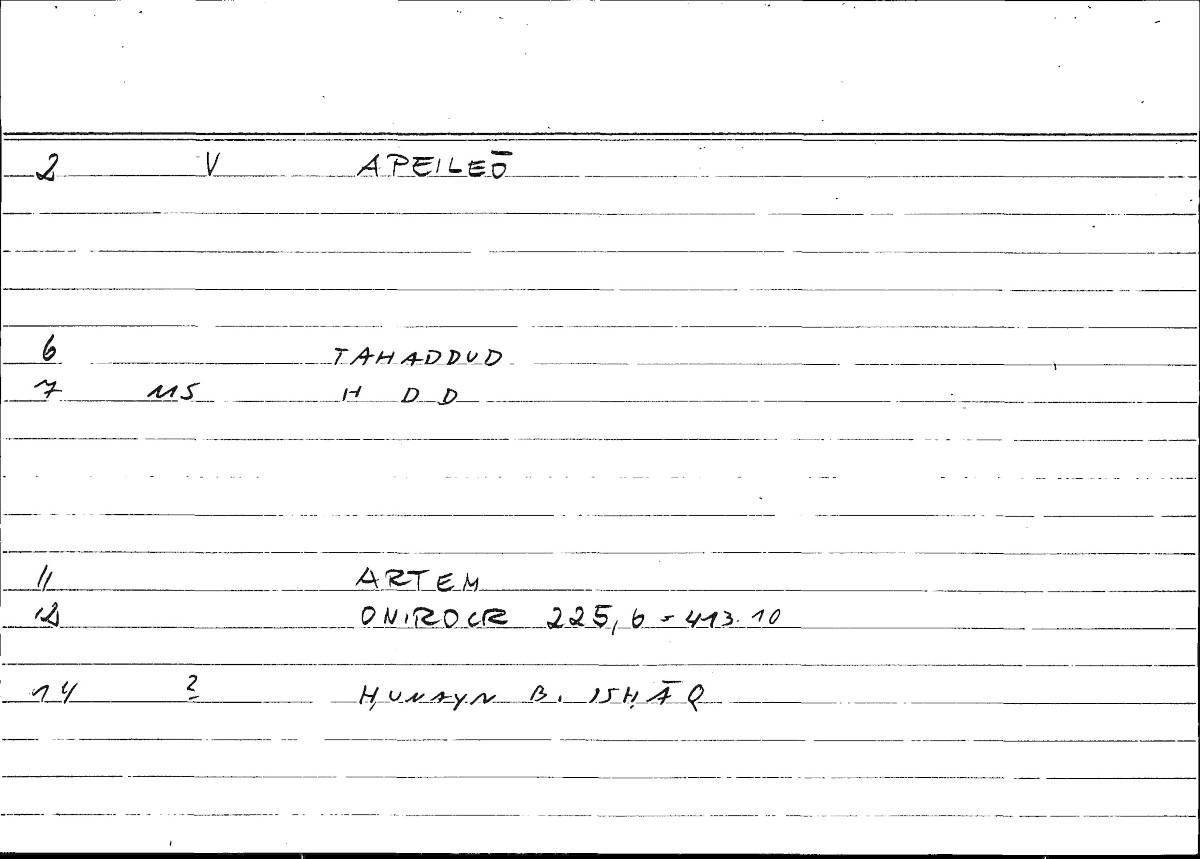 2 V APEILEŌ
6 TAHADDUD
7 MS H D D
11 ARTEM
12 ONIROCR 225,6 = 413.10
14 2 ḤUNAYN B. ISḤĀQ